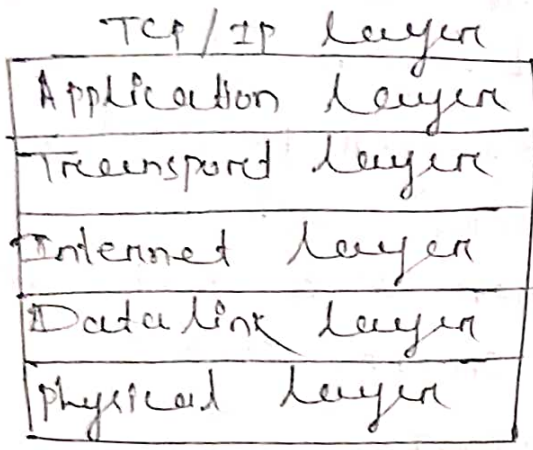 TCP/IP layer
Application layer
Transport layer
Internet layer
Data link layer
physical layer